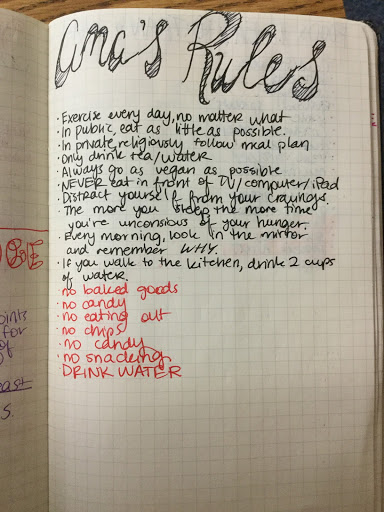 ana's Rules
· Exercise every day, no matter what
· In public, eat as little as possible.
· In private, religiously follow meal plan
· Only drink tea/water
· Always go as vegan as possible
· NEVER eat in front of TV/computer/iPad
· Distract yourself from your cravings.
· The more you sleep the more time
you're unconsious of your hunger.
· Every morning, look in the mirror
and remember WHY.
· If you walk to the kitchen, drink 2 cups
of water.
· no baked goods
· no candy
· no eating out
· no chips
· no candy
· no snacking
· DRINK WATER
oints
for
of
ast
s.